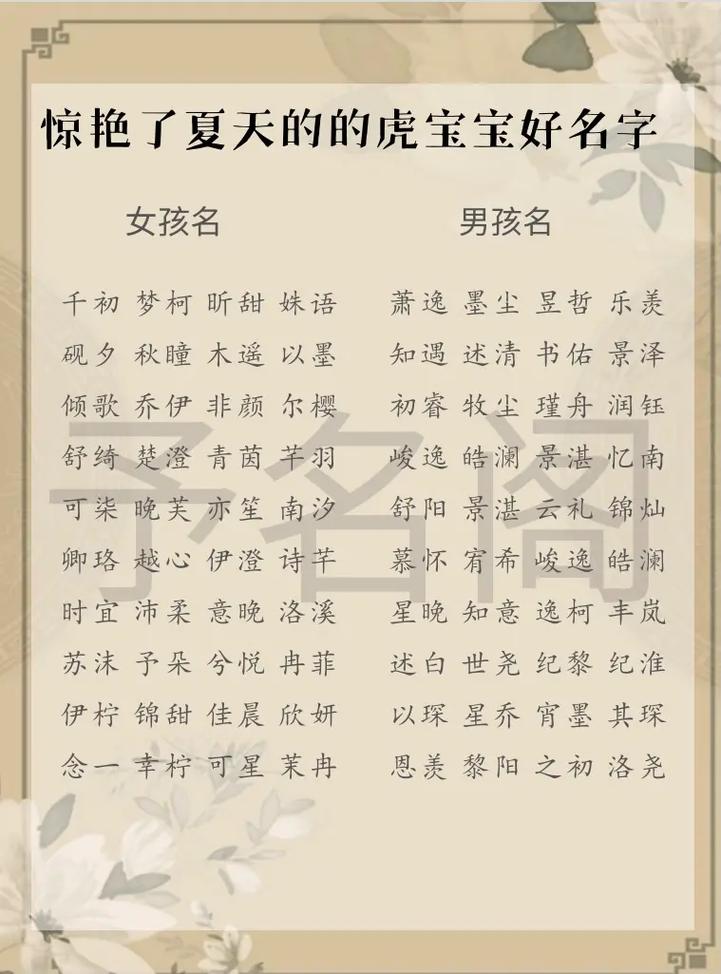 惊艳了夏天的的虎宝宝好名字
女孩名 男孩名
千初 梦柯 昕甜 姝语 萧逸 墨尘 昱哲 乐羡
砚夕 秋瞳 木遥 以墨 知遇 述清 书佑 景泽
倾歌 乔伊 非颜 尔樱 初睿 牧尘 瑾舟 润钰
舒绮 楚澄 青茵 芊羽 峻逸 皓澜 景湛 忆南
可柒 晚芙 亦笙 南汐 舒阳 景湛 云礼 锦灿
卿珞 越心 伊澄 诗芊 慕怀 宥希 峻逸 皓澜
时宜 沛柔 意晚 洛溪 星晚 知意 逸柯 丰岚
苏沫 予朵 兮悦 冉菲 述白 世尧 纪黎 纪淮
伊柠 锦甜 佳晨 欣妍 以琛 星乔 宵墨 其琛
念一 幸柠 可星 茉冉 恩羡 黎阳 之初 洛尧
予名阁